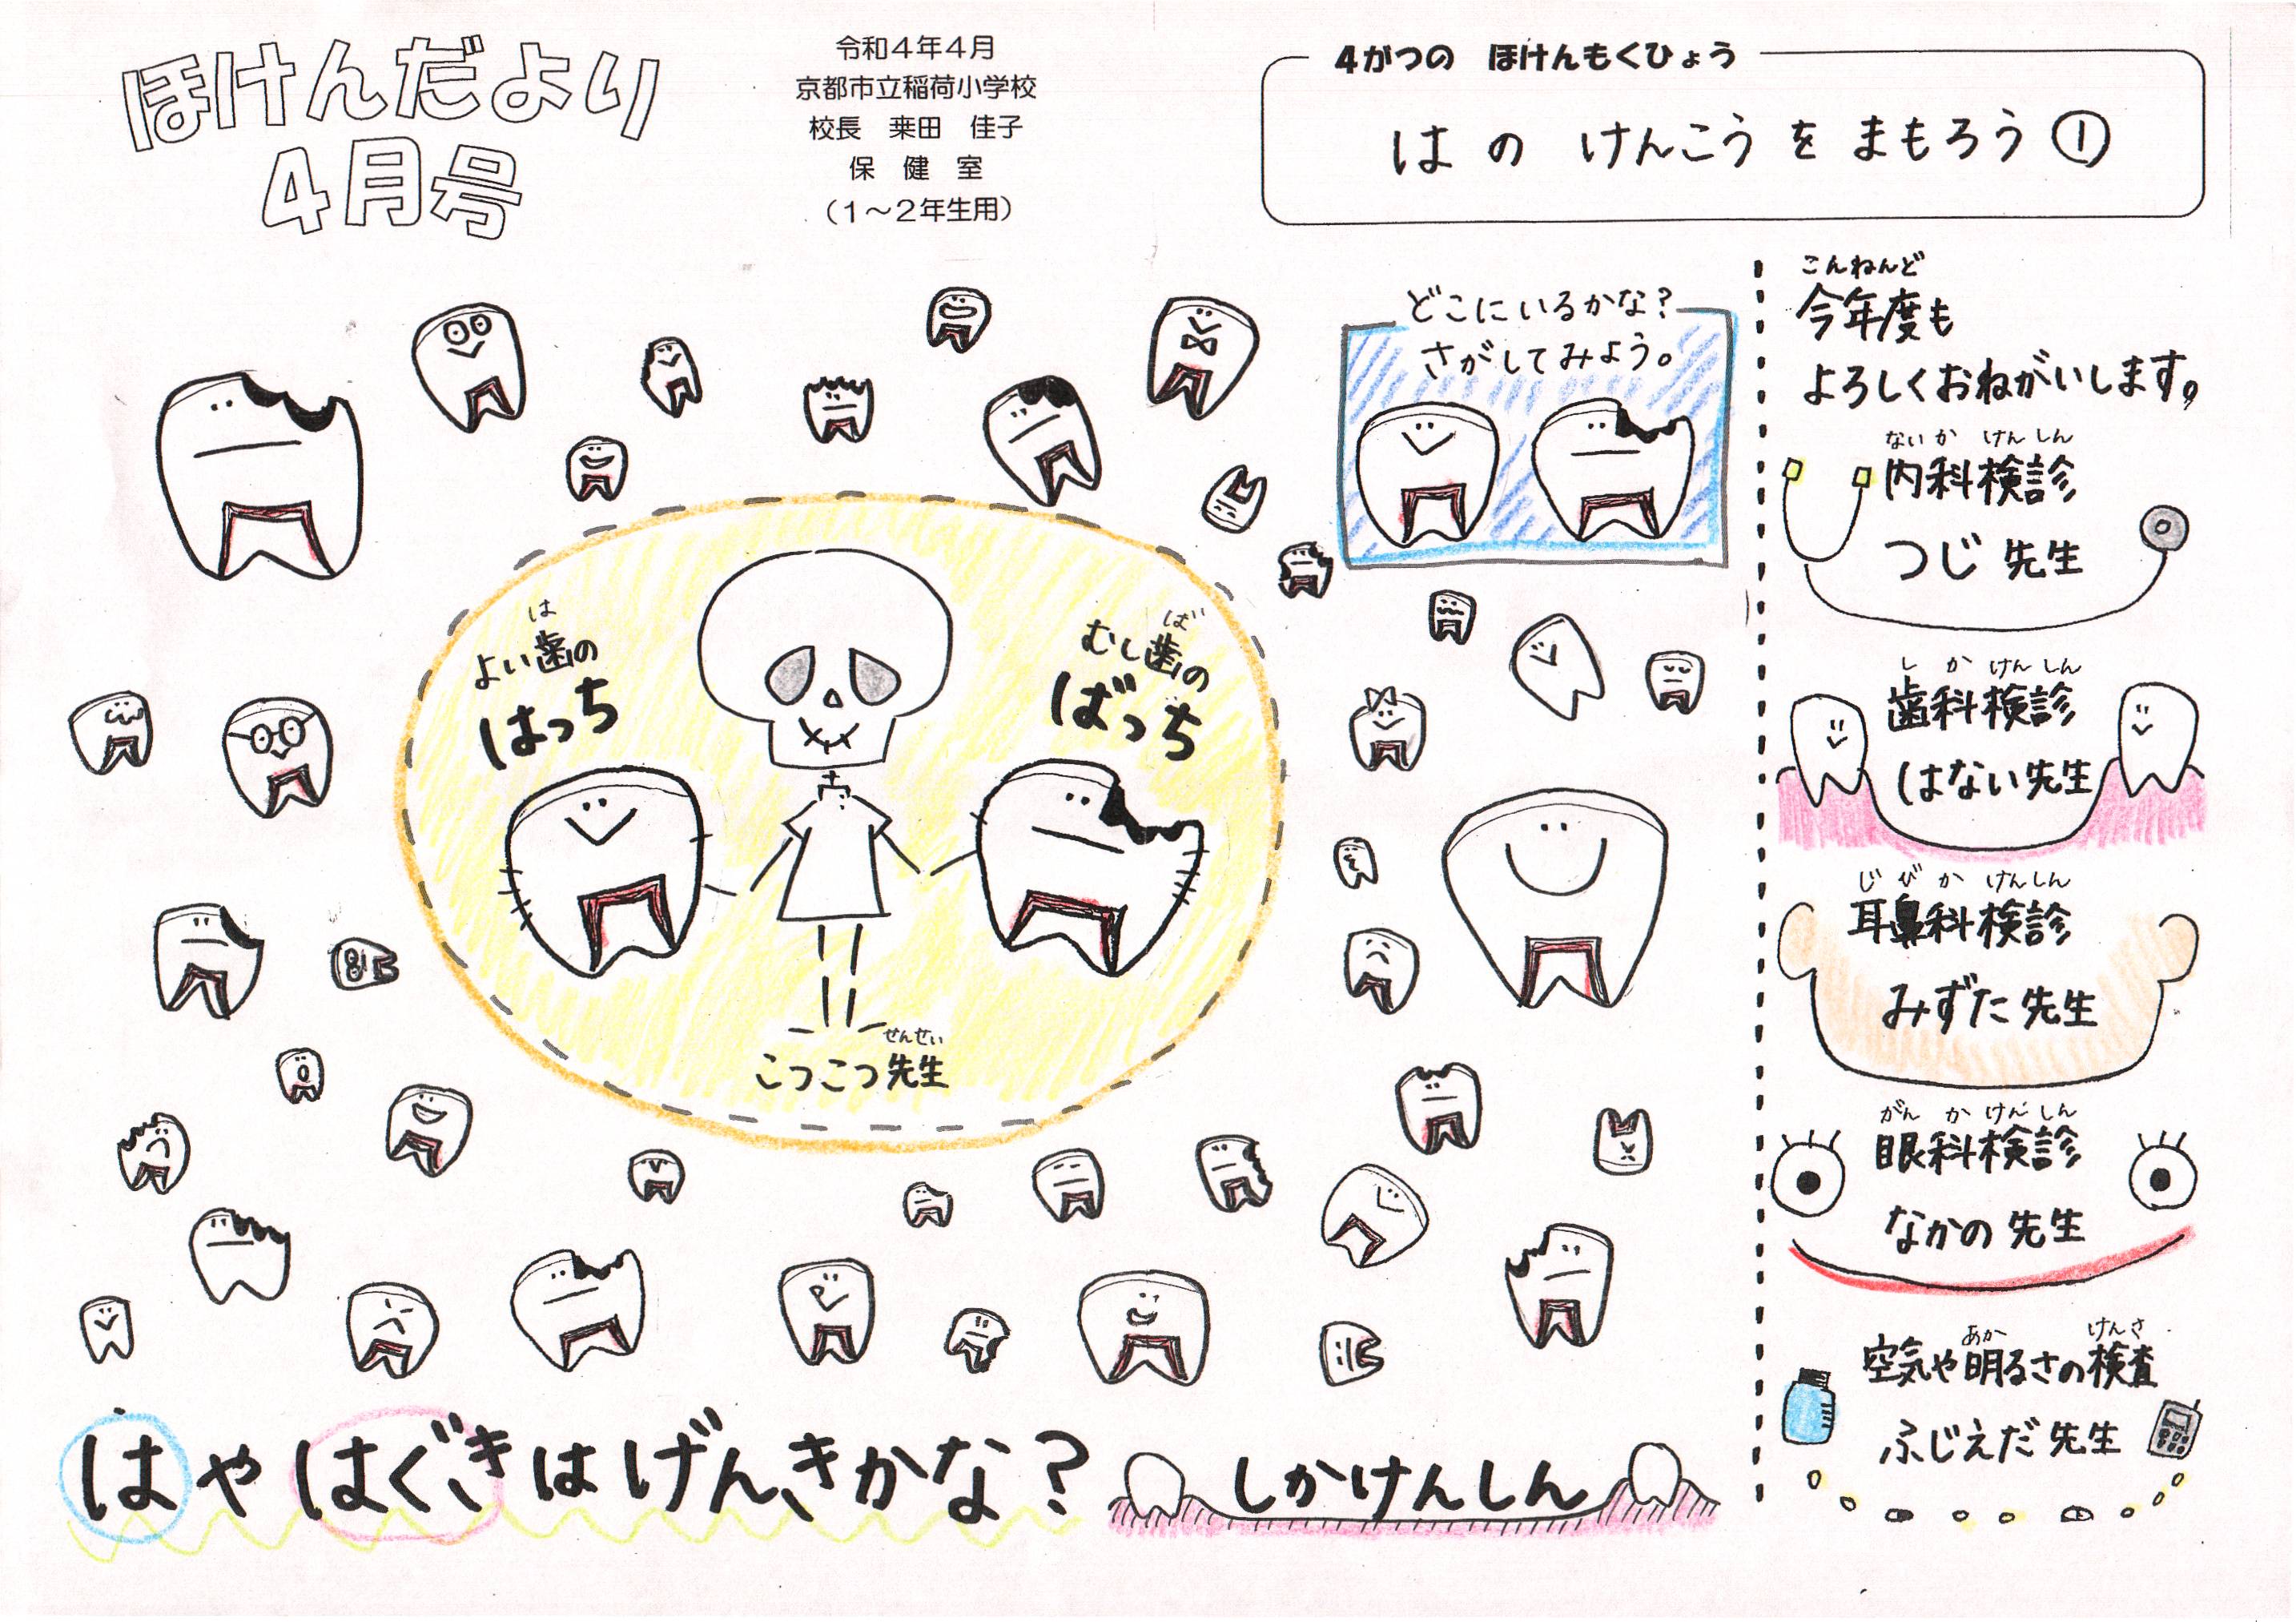 ほけんだより
4月号
令和4年4月
京都市立稲荷小学校
校長 乗田 佳子
保健室
(1～2年生用)
4がつの ほけんもくひょう
は の けんこう を まもろう ①
どこにいるかな?
さがしてみよう。
は
よい歯の
はっち
ば
むし歯の
ばっち
せんせい
こつこつ先生
はやはぐきはげんきかな?
しかけんしん
こんねんど
今年度も
よろしくおねがいします。
ないかけんしん
内科検診
つじ先生
しかけんしん
歯科検診
はない先生
じびかけんしん
耳鼻科検診
みずた先生
がんかけんしん
眼科検診
なかの先生
あか けんさ
空気や明るさの検査
ふじえだ先生